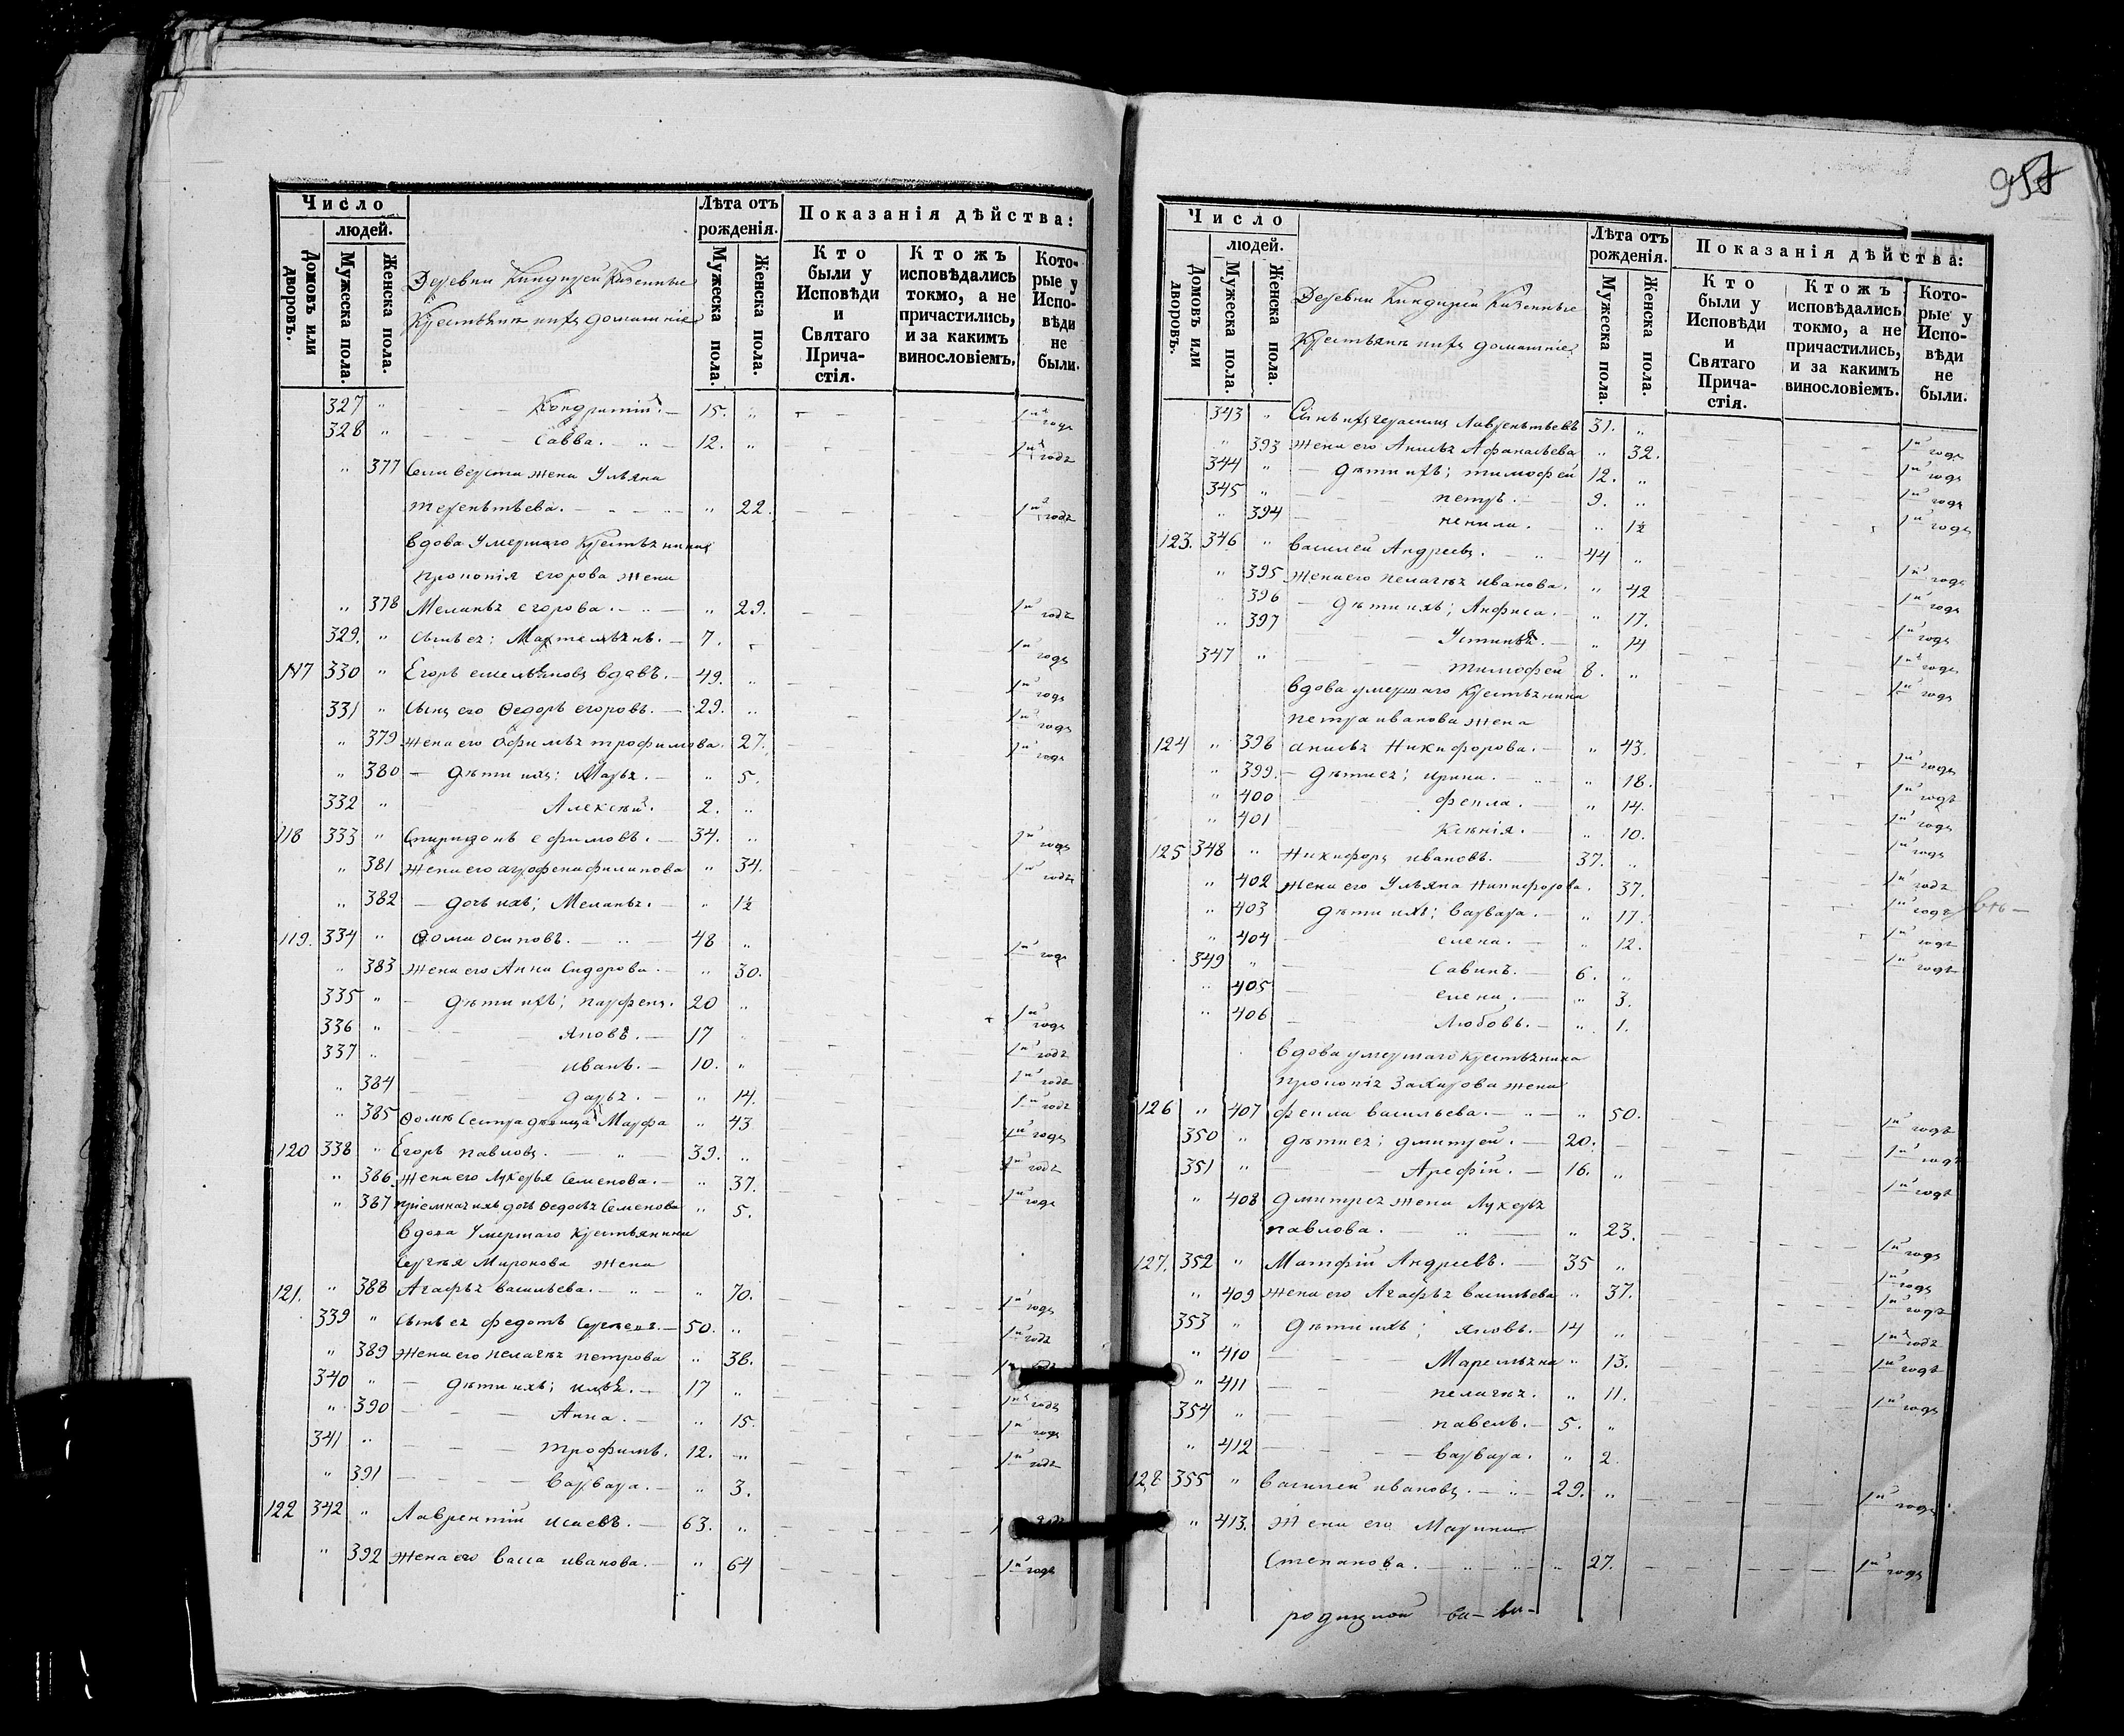 Число
людей.
Домовъ или дворовъ.
Мужеска пола.
Женска пола.
Деревни Киндирей Казенные
Крестьяне и ихъ домашніе
Лѣта отъ рожденія.
Мужеска пола.
Женска пола.
Показанія дѣйства:
Кто были у Исповѣди и Святаго Причастія.
Ктожъ исповѣдались токмо, а не причастились, и за какимъ винословіемъ.
Которые у Исповѣди не были.
327 " Кондратій. 15. " 1й годъ
328 " Савва. 12. " 1й годъ
" 377 Селиверста жена Ульяна
терентьева. " 22. 1й годъ
вдова Умершаго Крестьянина
прокопія егорова жена
" 378 Меланья егорова. " 29. 1й годъ
329. " сынъ ея: Мартемьянъ. 7. 1й годъ
117 330 " Егоръ емельяновъ вдовъ. 49. " 1й годъ
331 " сынъ его Ѳедоръ егоровъ. 29. " 1й годъ
" 379 жена его Офимья трофимова. 27. 1й годъ
" 380 дѣти ихъ: Марья. " 5.
332 " Алексѣй. 2. "
118 333 " Спиридонъ ефимовъ. 34. " 1й годъ
" 381 жена его агрофена филипова " 34. 1й годъ
" 382 дочь ихъ; Меланья. " 1½
119. 334 " Ѳома осиповъ. 48 " 1й годъ
" 383 жена его Анна Сидорова. " 30.
335 " дѣти ихъ; парфенъ. 20 " 1й годъ
336 " яковъ. 17 " 1й годъ
337 " иванъ. 10. " 1й годъ
" 384 дарья. " 14. 1й годъ
" 385 Ѳомы Сестра дѣвица Марфа " 43 1й годъ
120 338 " Егоръ павловъ. 39. " 1й годъ
" 386. жена его лукерья Семенова. " 37. 1й годъ
" 387 пріемная ихъ дочь Ѳедосья Семенова " 5.
вдова Умершаго Крестьянина
Сергѣя Миронова жена
121. " 388 Агафья васильева. " 70. 1й годъ
339 " сынъ ея федотъ Сергеевъ. 50. " 1й годъ
" 389 жена его пелагея петрова " 38.
340 " дѣти ихъ; илья. 17 " 1й годъ
" 390 Анна. " 15. 1й годъ
341 " трофимъ. 12. " 1й годъ
" 391 варвара. " 3.
122 342 " Лаврентій исаевъ. 63. "
" 392 жена его васса иванова. " 64 1й годъ
957
Число
людей.
Домовъ или дворовъ.
Мужеска пола.
Женска пола.
Деревни Киндирей Казенные
Крестьяне и ихъ домашніе
Лѣта отъ рожденія.
Мужеска пола.
Женска пола.
Показанія дѣйства:
Кто были у Исповѣди и Святаго Причастія.
Ктожъ исповѣдались токмо, а не причастились, и за какимъ винословіемъ.
Которые у Исповѣди не были.
343 " Сынъ ихъ герасимъ Лаврентьевъ 31. " 1й годъ
" 393 жена его Анисья Афанасьева " 32. 1й годъ
344 " дѣти ихъ; тимофей 12. " 1й годъ
345 " петръ. 9. " 1й годъ
" 394 ненила. " 1½
123. 346 " василей Андреевъ. 44 " 1й годъ
" 395 жена его пелагея иванова. " 42 1й годъ
" 396 дѣти ихъ; Анфиса. " 17. 1й годъ
" 397 Устинья. " 14 1й годъ
347 " тимофей 8. " 1й годъ
вдова умершаго Крестьянина
петра иванова жена
124 " 398 анисья Никифорова. " 43. 1й годъ
" 399. дѣти ея; ирина. " 18. 1й годъ
" 400 фекла. " 14. 1й годъ
" 401 Ксѣнія. " 10. 1й годъ
125 348 " Никифоръ ивановъ. 37. " 1й годъ
" 402 жена его Ульяна Никифорова. 37. 1й годъ
" 403 дѣти ихъ; варвара. " 17. 1й годъ
" 404 елена. " 12. 1й годъ
349 " Савинъ. 6. "
" 405 елена. " 3.
" 406 Любовь. " 1.
вдова умершаго Крестьянина
прокопія Захарова жена
126 " 407 фекла васильева. " 50. 1й годъ
350 " дѣти ея; дмитрей. 20. 1й годъ
351 " Арефій. 16. " 1й годъ
" 408 дмитрея жена Лукерья
павлова. " 23. 1й годъ
127. 352 " Матфій Андреевъ. 35 " 1й годъ
" 409 жена его Агафья васильева " 37. 1й годъ
353 " дѣти ихъ; яковъ. 14 " 1й годъ
" 410 Маремьяна " 13. 1й годъ
" 411 пелагея. " 11. 1й годъ
354 " павелъ. 5. "
" 412 варвара. " 2.
128 355 " василей ивановъ. 29. " 1й годъ
" 413. жена его Марина
Степанова. " 27. 1й годъ